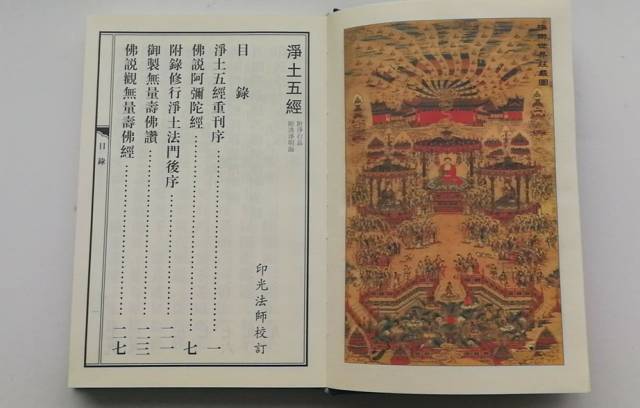 極樂世界莊嚴圖
淨土五經
目錄
印光法師校訂
淨土五經重刊序⋯⋯一
佛説阿彌陀經⋯⋯七
附錄修行淨土法門後序⋯⋯二一
御製無量壽佛讚⋯⋯二三
佛説觀無量壽佛經⋯⋯二七
目錄